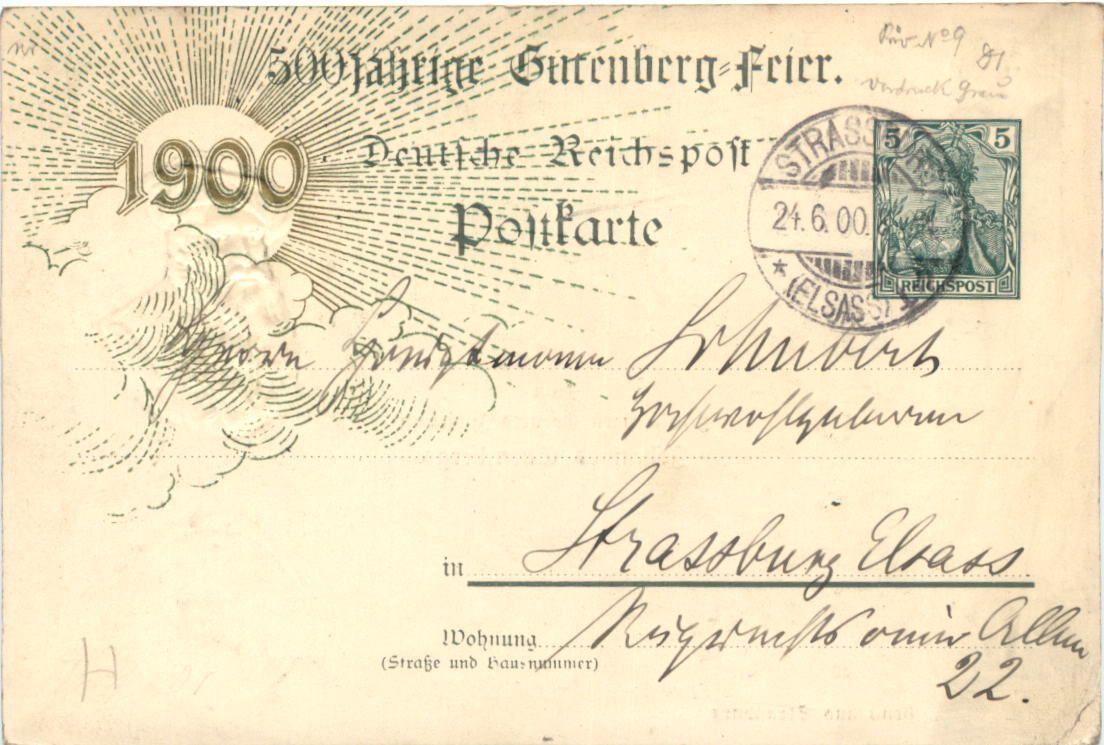 Priv. No 9
Vordruck Grau
500jährige Gutenberg-Feier.
1900
Deutsche Reichspost
Postkarte
STRASSBURG
24.6.00.
* (ELSASS) 1
5 5
REICHSPOST
Herrn Hauptmann Schubert
Hochwohlgeboren
in Strassburg Elsass.
Wohnung Ruprechtsauer Allee
(Straße und Hausnummer)
22.
H